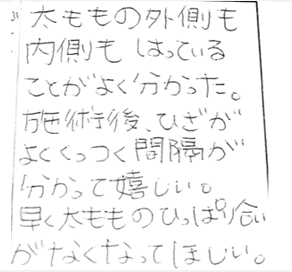 太ももの外側も
内側もはっている
ことがよく分かった。
施術後、ひざが
よくくっつく間隔が
分かって嬉しい。
早く太もものひっぱり合い
がなくなってほしい。